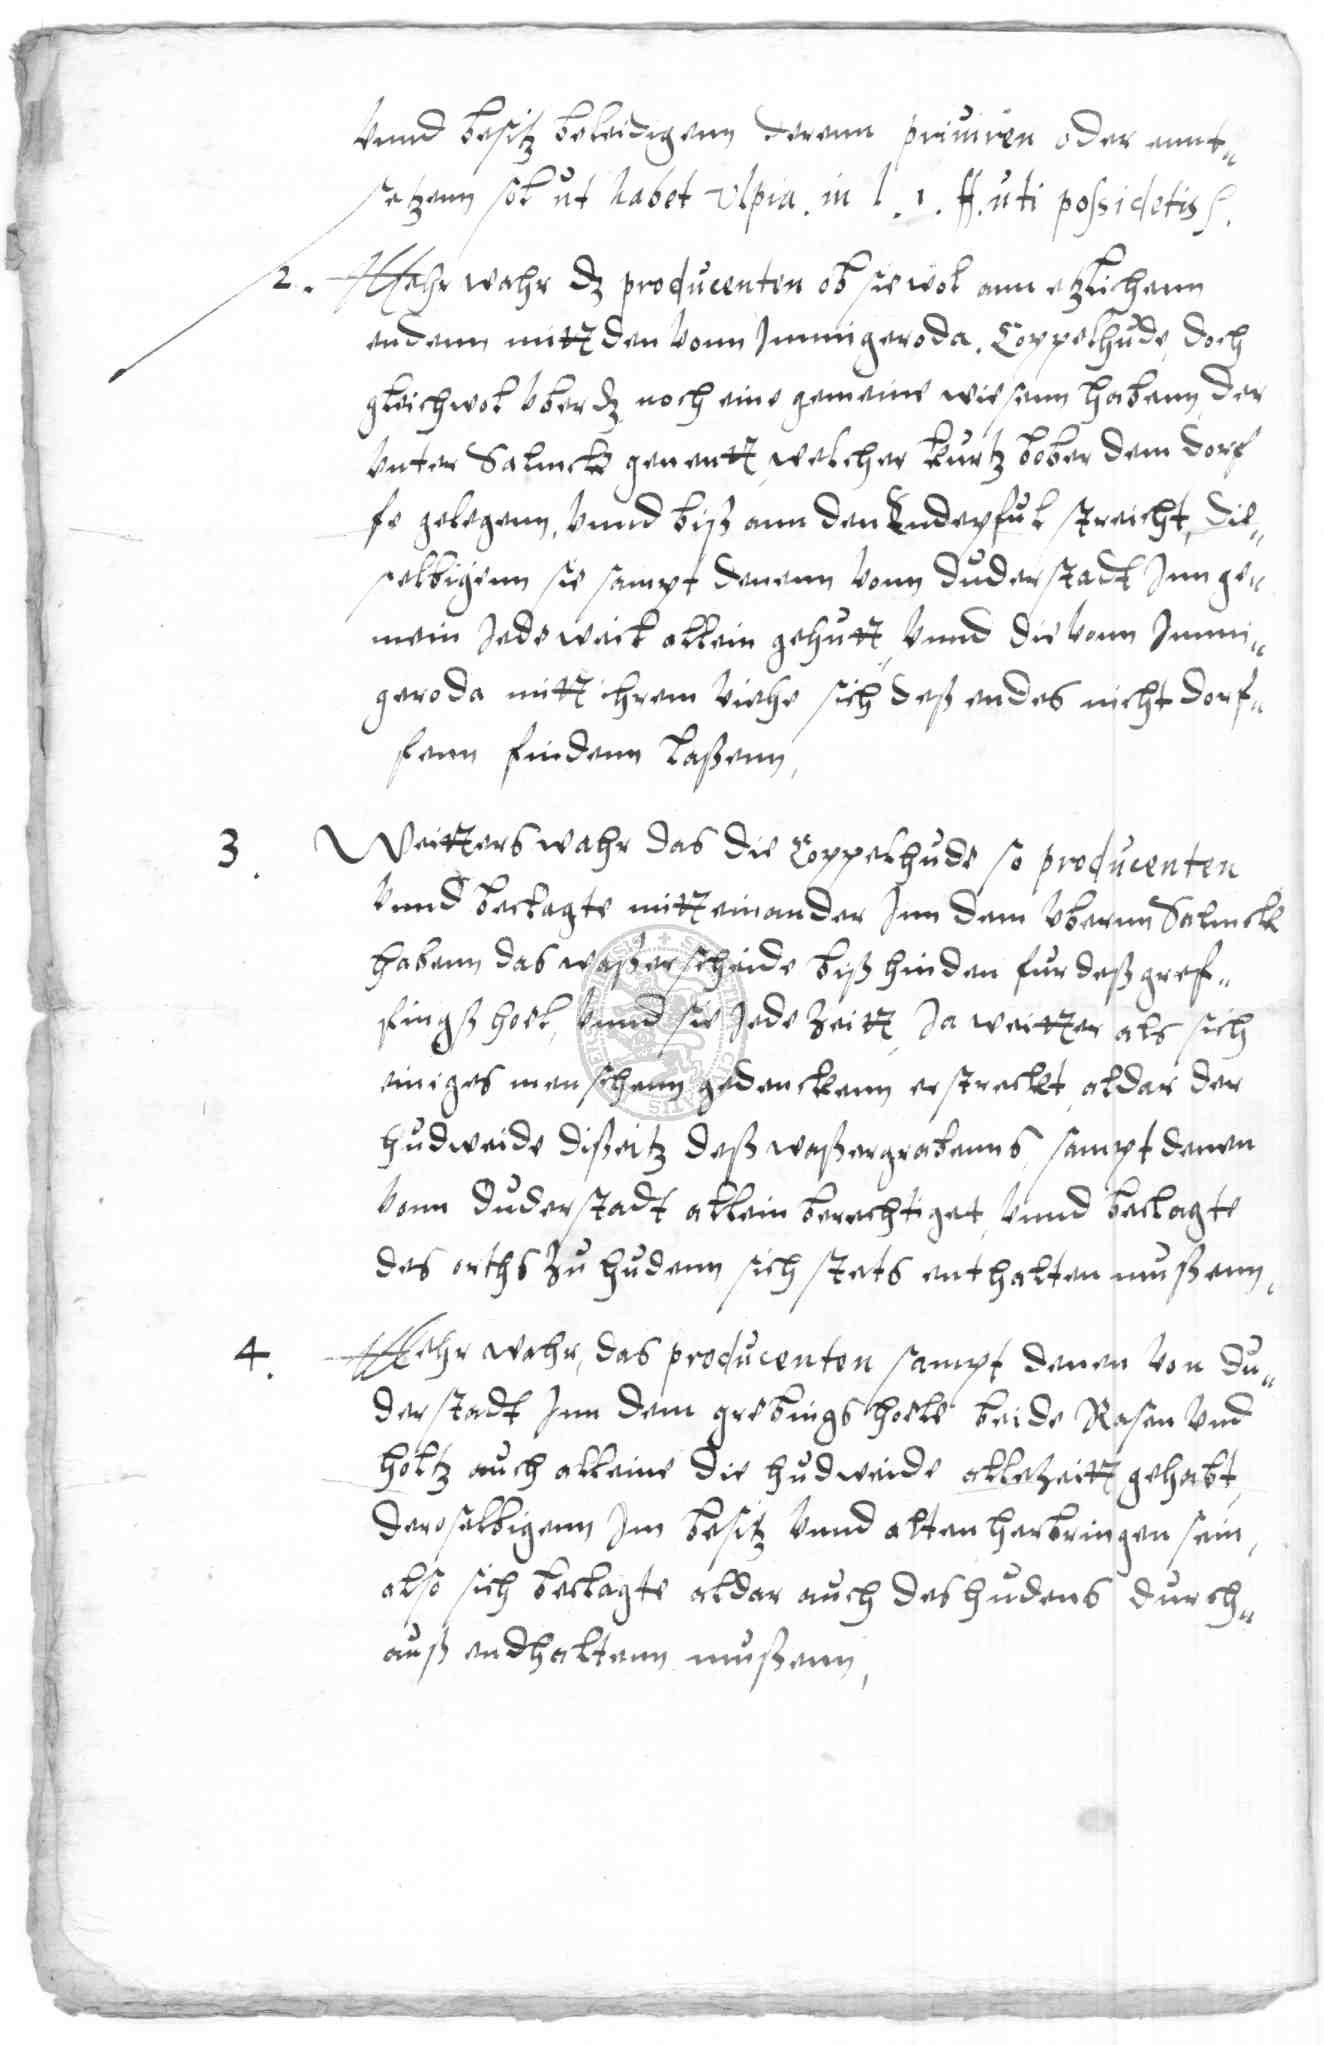 Vnnd besitz beleidigenn derenn priuiren oder ennt„
setzenn sol ut habet Vlpia. in l. 1. ff. uti possidetis
2. Mehr wahr dz producenten ob sie wol ann etzlichenn
endenn mitt den vonn Immigeroda. Coppelhude, doch
gleichwol vber dz noch eine gemeine wiesenn habenn, der
Vnter Salmck genentt, welcher kurtz bober dem dorf
fe gelegenn, Vnnd biß ann den Endepful streicht, die„
selbigenn sie sampt denenn vonn Duderstadt Inn ge„
mein Jedeweil allein gehutt, Vnnd die vonn Immi„
geroda mitt ihrem viehe sich deß endes nicht dorf„
fenn findenn laßenn,
3. Weitters wahr das die Coppelhude so producenten
Vnnd beclagte mitt einander Inn dem Vbernn Salmck
habenn das waßerscheide biß hinden fur deß gref„
fingß hoel, Vnnd sie Jede Zeitt, Ja weitter als sich
einiges menschenn gedenckenn erstreckt, aldar der
hudweide dißeitz deß waßergrabenns, sampt denen
vonn Duderstadt allein berechtiget, Vnnd beclagte
des orths Zu hudenn sich stets enthalten mußenn,
4. Mehr wahr, das producenten sampt denen von Du„
derstadt Inn dem grebings hoele beide Rasen Vnd
holtz auch alleine die hudweide allezeitt gehabt,
deroselbigenn Im besitz Vnnd alten herbringen sein,
also sich beclagte aldar auch des hudens durch„
auß endhaltenn mußenn,